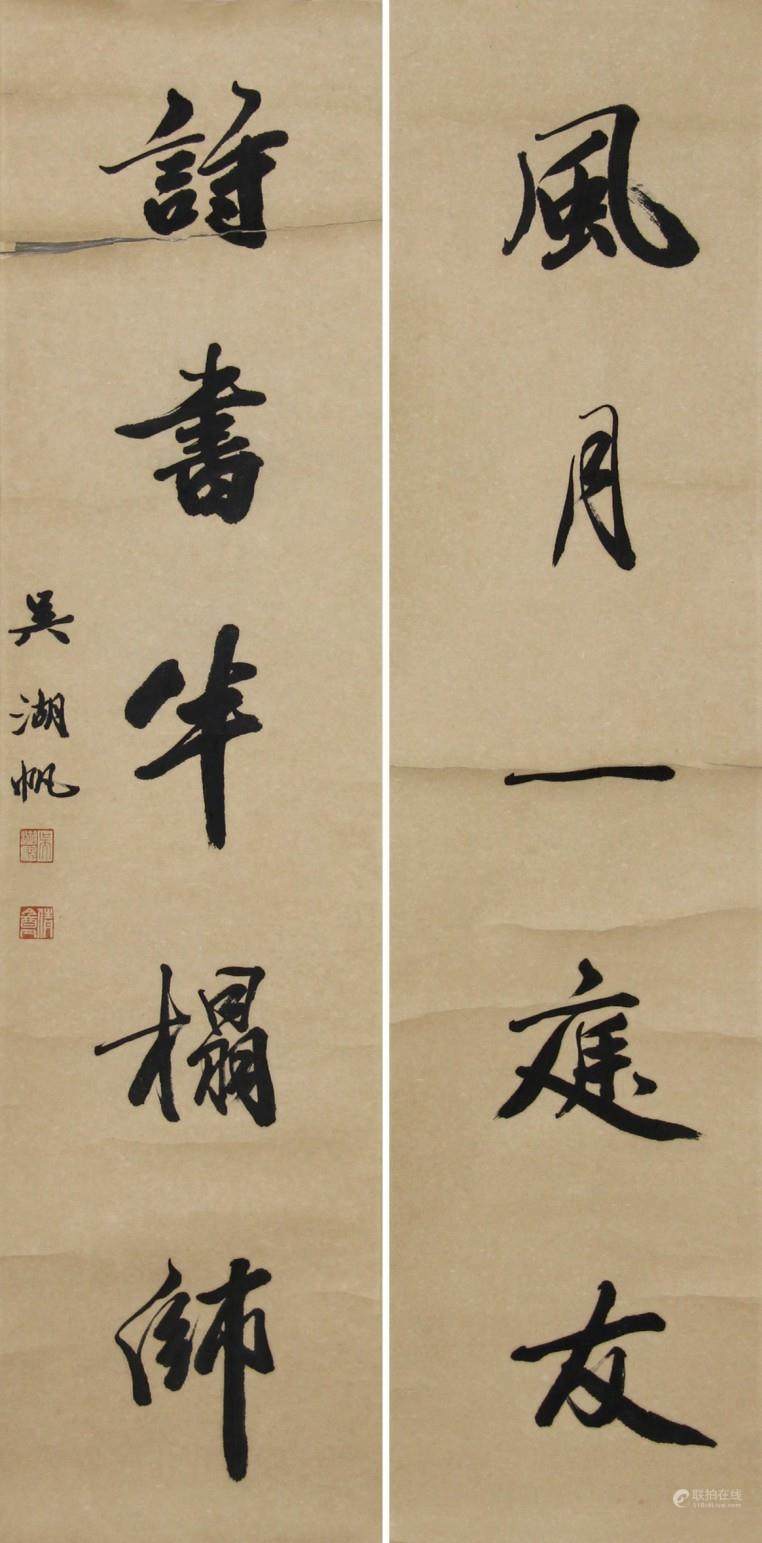 風月一庭友
詩書半榻師
吳湖帆
联拍在线